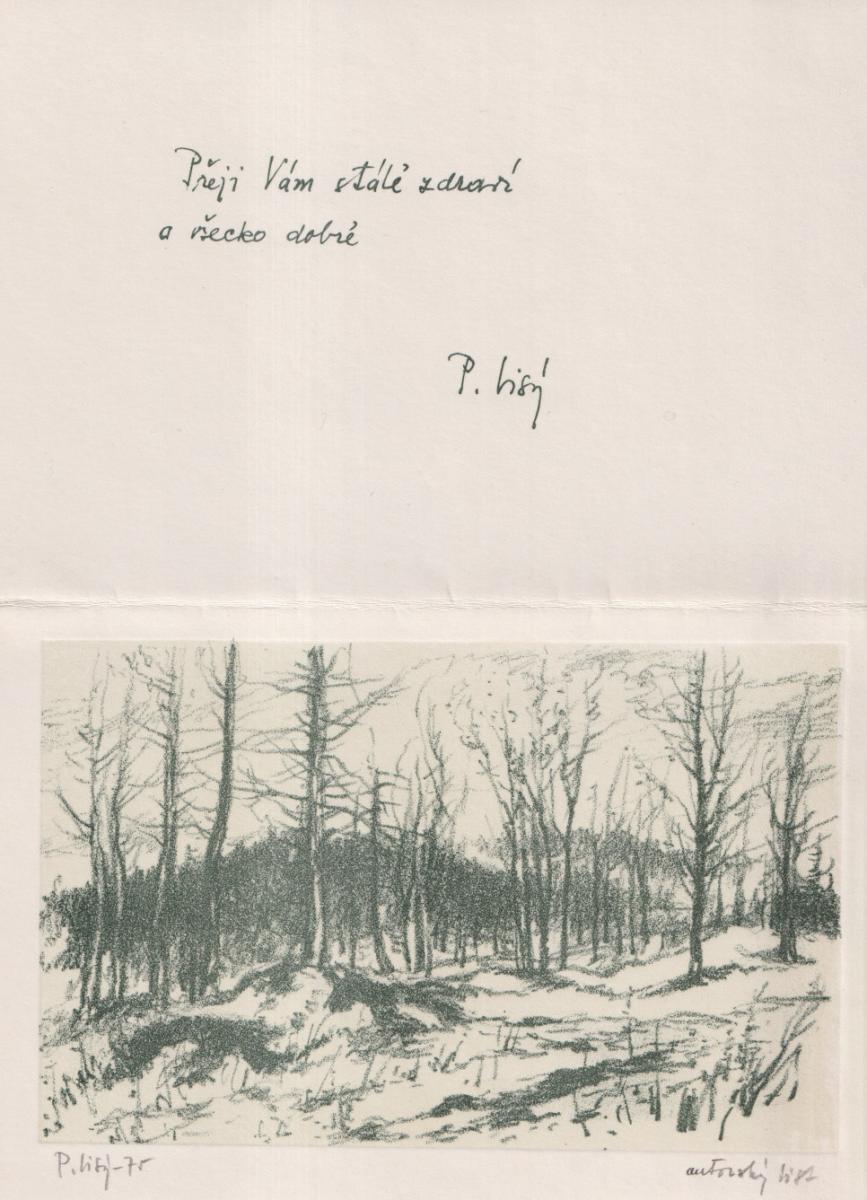 Přeji Vám stálé zdraví
a všecko dobré
P. Lisý
P. Lisý-75
autorský list